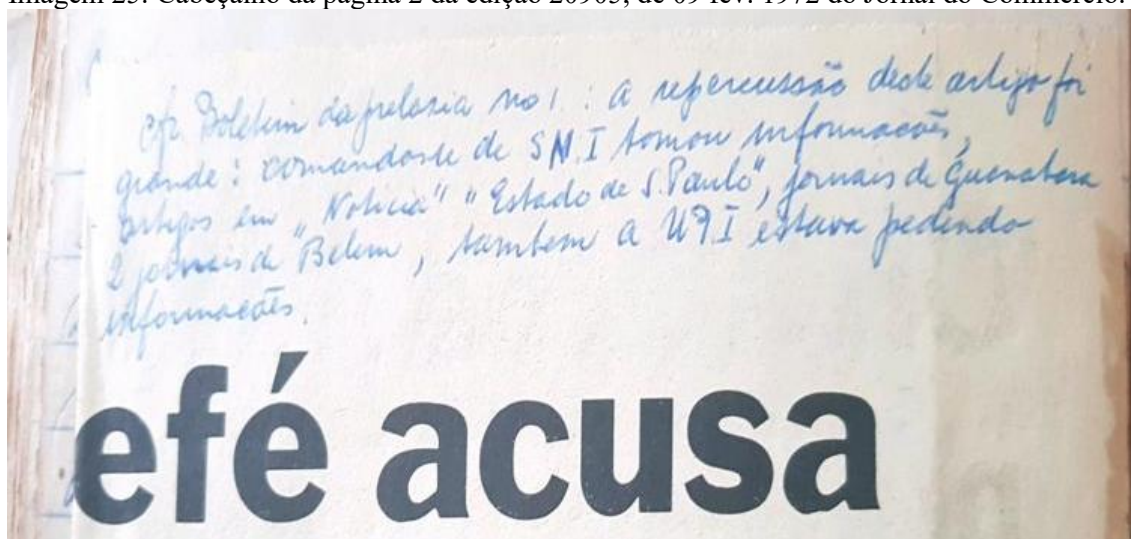 Imagem 25: Cabeçalho da página 2 da edição 20905, de 09 fev. 1972 do Jornal do Commercio.
cfr. Boletim da prelazia no 1. : a repercussão deste artigo foi
grande : comandante de S N. I tomou informações,
artigos em „Noticia" „Estado de S. Paulo", jornais de Guanabara
2 jornais de Belem, tambem a UPI estava pedindo
informações.
efé acusa